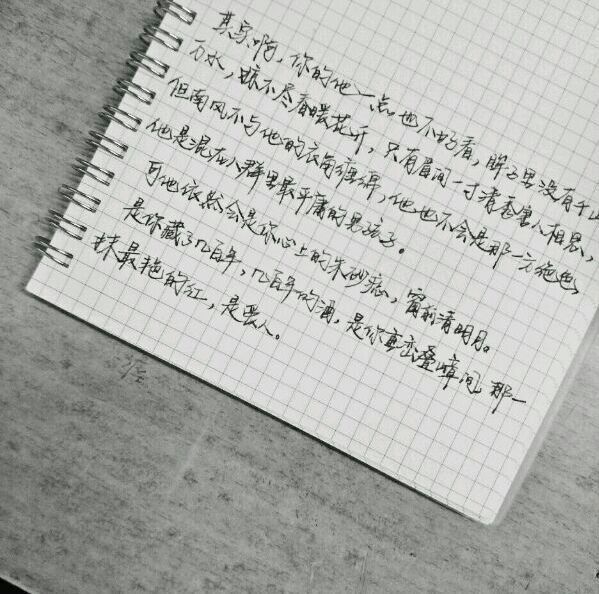 其实啊，你的他一点也不好看，眸子里没有千山
万水，不尽春暖花开，只有眉间一寸清香人相思，
但南风不与他的衣角缠绵，他也不会是那一方绝色，
他是混在人群里最平庸的男孩子。
可他依然会是你心上的朱砂痣，窗前清明月。
是你藏了几百年，几百年的酒，是你重峦叠嶂间，那一
抹最艳的红，是人。